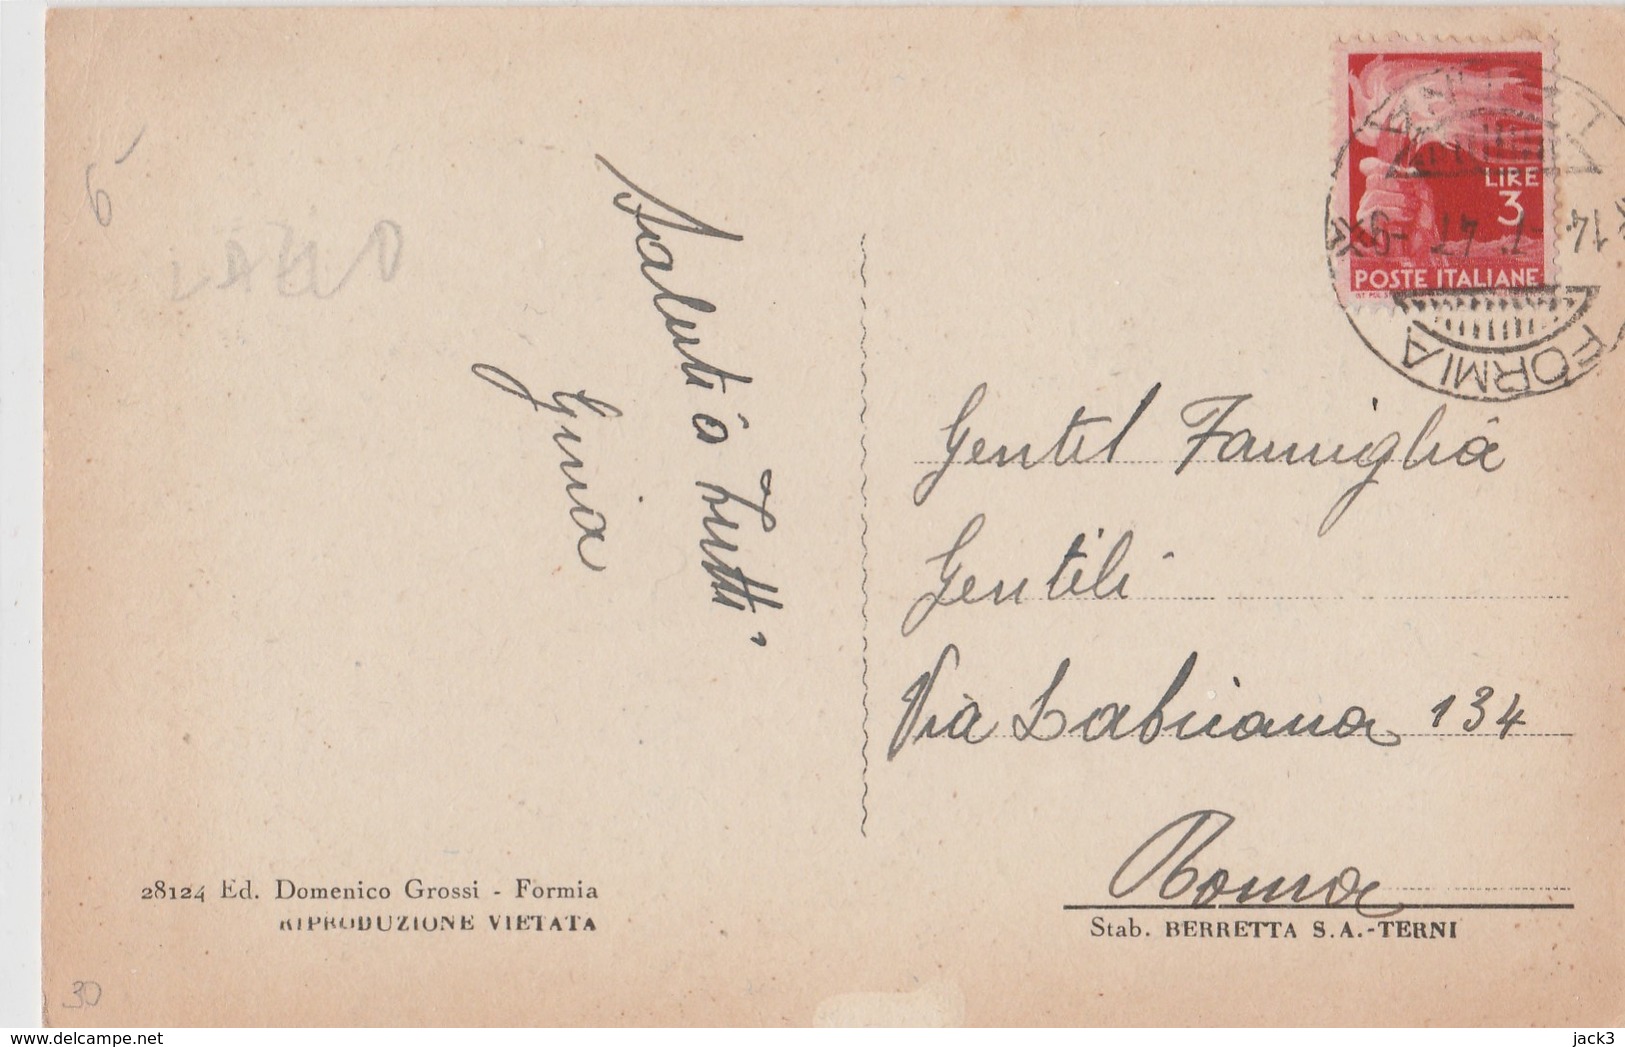 6
LAZIO
Saluti a Tutti
Gina
LIRE
3
POSTE ITALIANE
14.-7.47.-9
FORMIA
Gentil Famiglia
Gentili
Via Labicana 134
Roma
28124 Ed. Domenico Grossi - Formia
RIPRODUZIONE VIETATA
Stab. BERRETTA S.A.-TERNI
30
delcampe.net
jack3